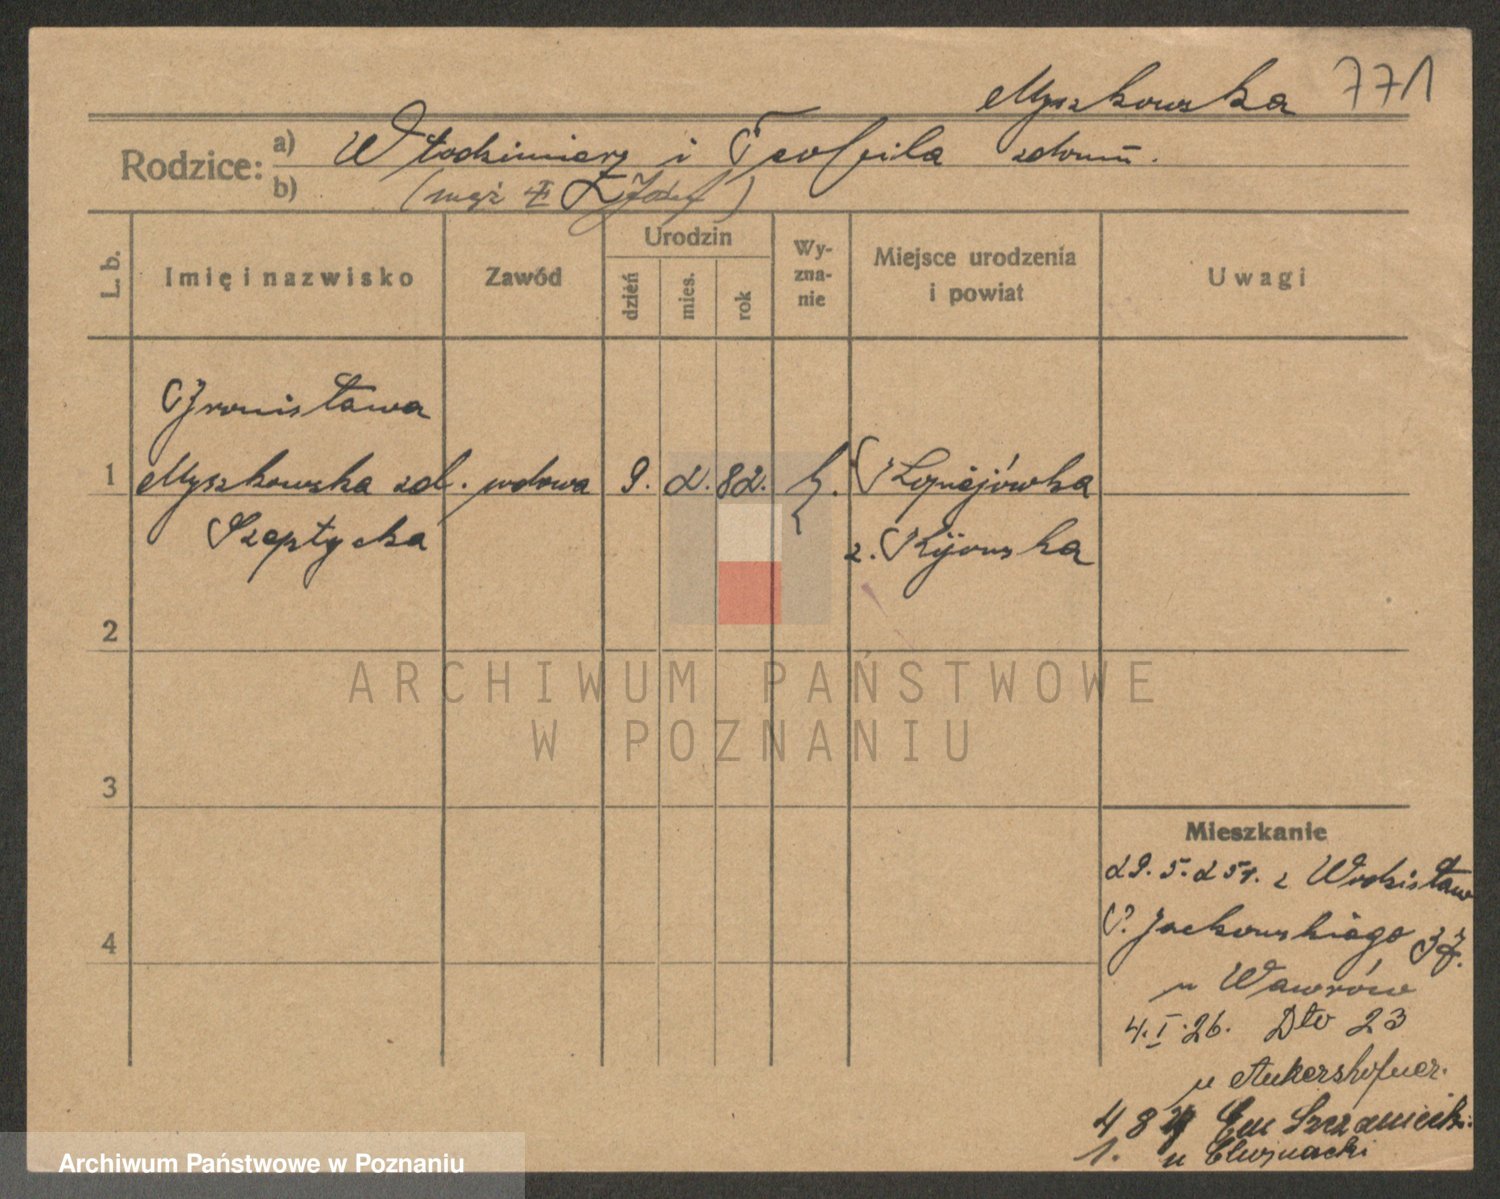 Myszkowska 771
Rodzice:
a) Włodzimierz i Teofila zdomu.
b) (mąż II Józef)
L. b.
Imię i nazwisko
Zawód
Urodzin
dzień
mies.
rok
Wy-
zna-
nie
Miejsce urodzenia
i powiat
Uwagi
Bronisława
1 Myszkowska zd. wdowa 9. 2. 82.
Szeptycka z. Kijowska
2
ARCHIWUM PAŃSTWOWE
W POZNANIU
3
4
Mieszkanie
29. 5. 25 z
P. Jackowskiego
u Wawrów
4. I. 26. Dto 23
u
4 8
1. u
Archiwum Państwowe w Poznaniu